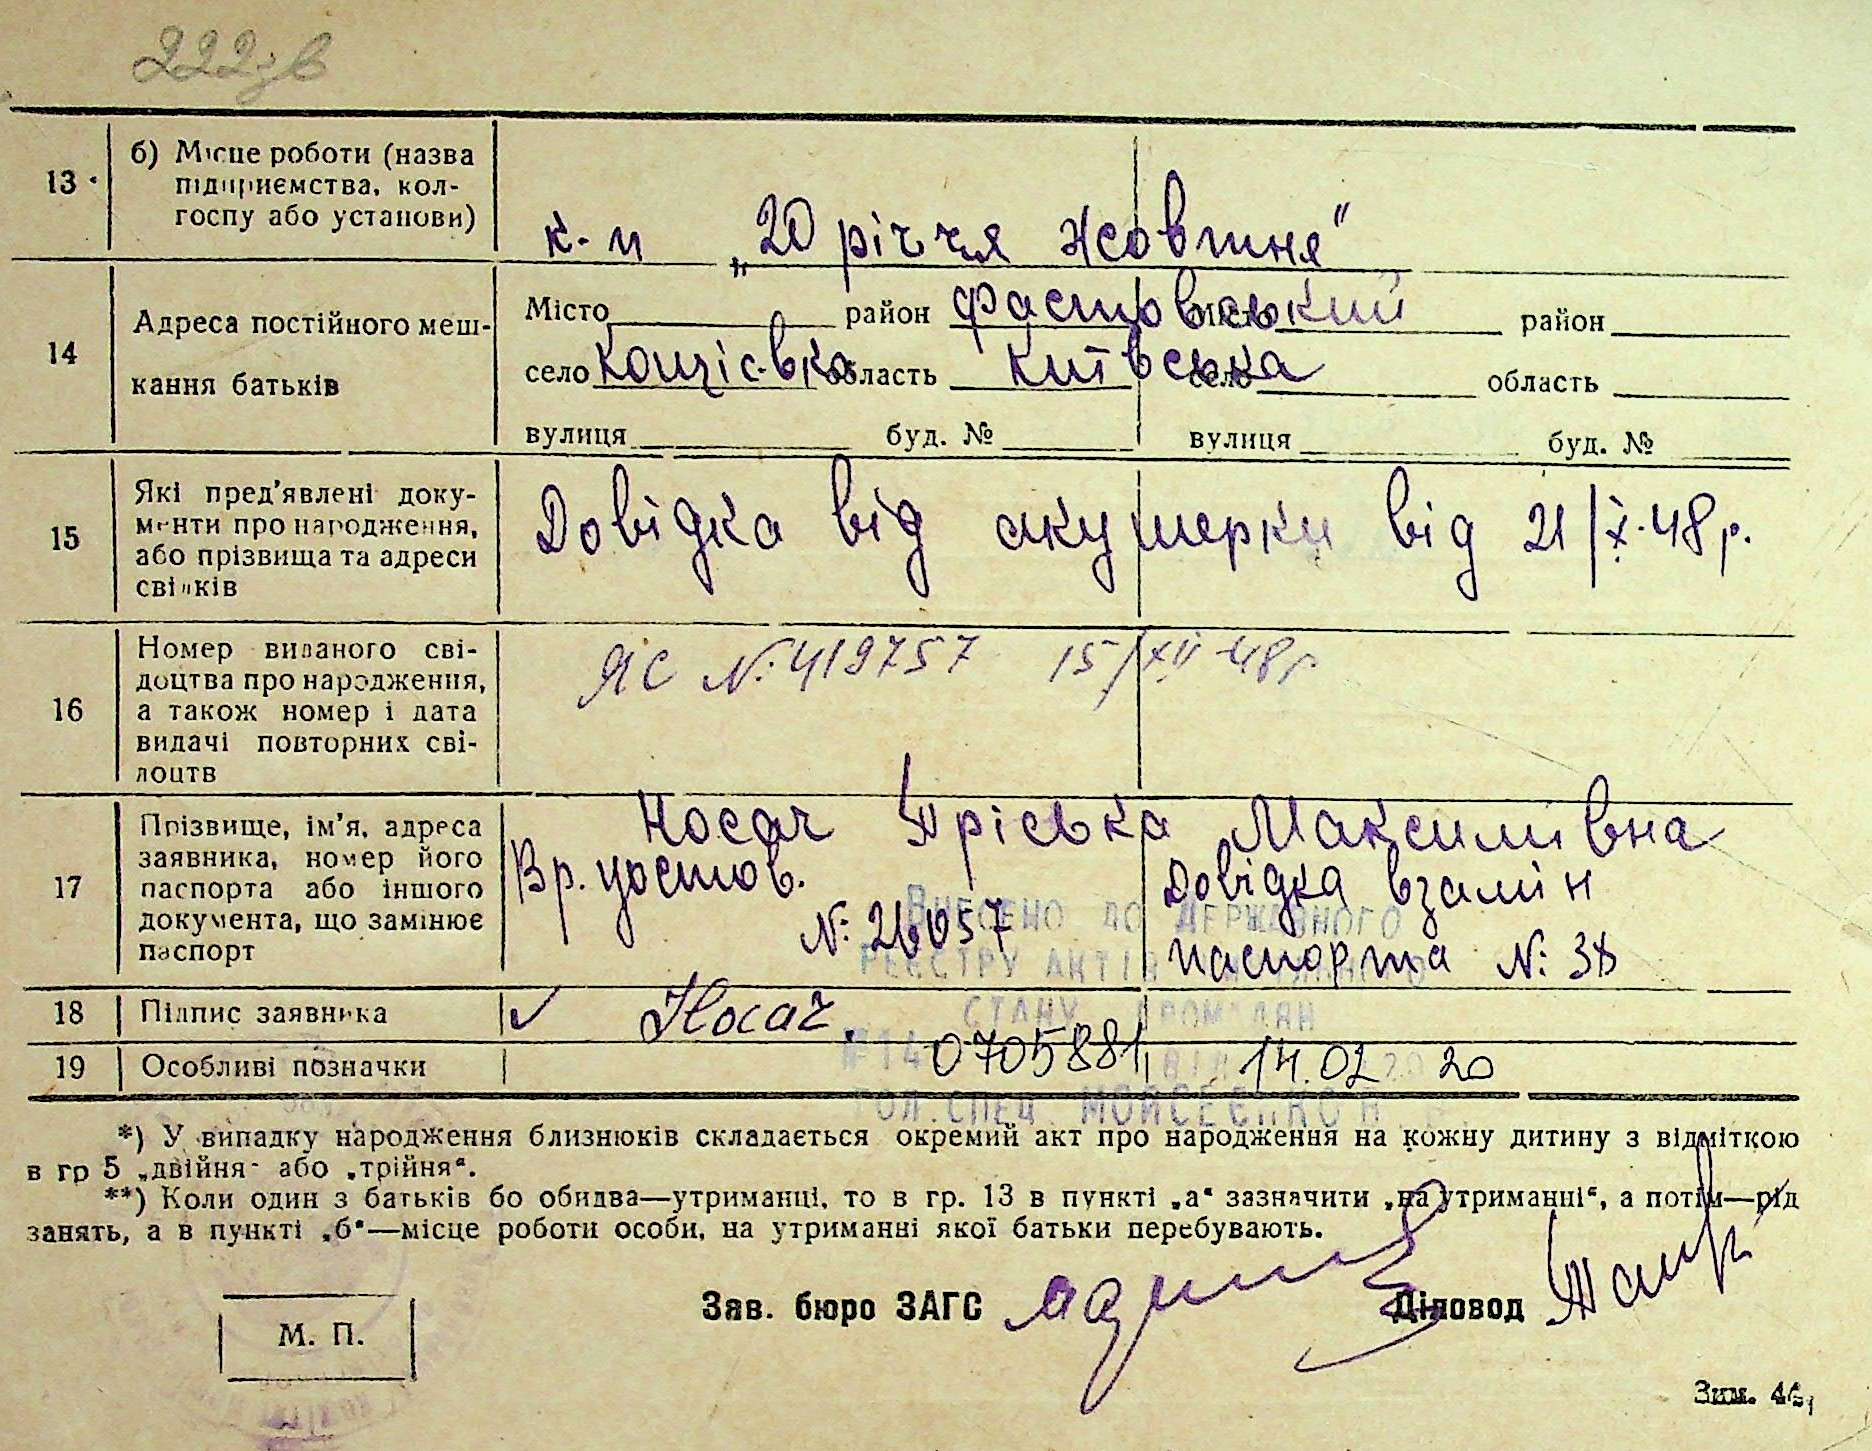 222 зв
13 б) Місце роботи (назва
підприємства, кол-
госпу або установи)
к-п „20 річчя Жовтня"
14 Адреса постійного меш-
кання батьків
Місто район Фастовський місто район
село область Київська село область
вулиця буд. № вулиця буд. №
15 Які пред'явлені доку-
менти про народження,
або прізвища та адреси
свідків
Довідка від акушерки від 21/X-48р.
16 Номер виданого сві-
доцтва про народження,
а також номер і дата
видачі повторних сві-
доцтв
ЯС №: 419757 15/XII-48р
17 Прізвище, ім'я, адреса
заявника, номер його
паспорта або іншого
документа, що замінює
паспорт
Носач Пріська Максимівна
Вр. уостов. Довідка взамін
№: паспорта №: 38
Внесено до Державного
реєстру актів цивільного
стану громадян
18 Підпис заявника ✓ Носач.
19 Особливі позначки
№ 14 0705881 від 14.02 2020
Гол. спец. Мойсеєнко Н
*) У випадку народження близнюків складається окремий акт про народження на кожну дитину з відміткою
в гр 5 „двійня" або „трійня".
**) Коли один з батьків бо обидва—утриманці, то в гр. 13 в пункті „а" зазначити „на утриманні", а потім—рід
занять, а в пункті „б"—місце роботи особи, на утриманні якої батьки перебувають.
Зав. бюро ЗАГС Діловод
М. П.
Зим.